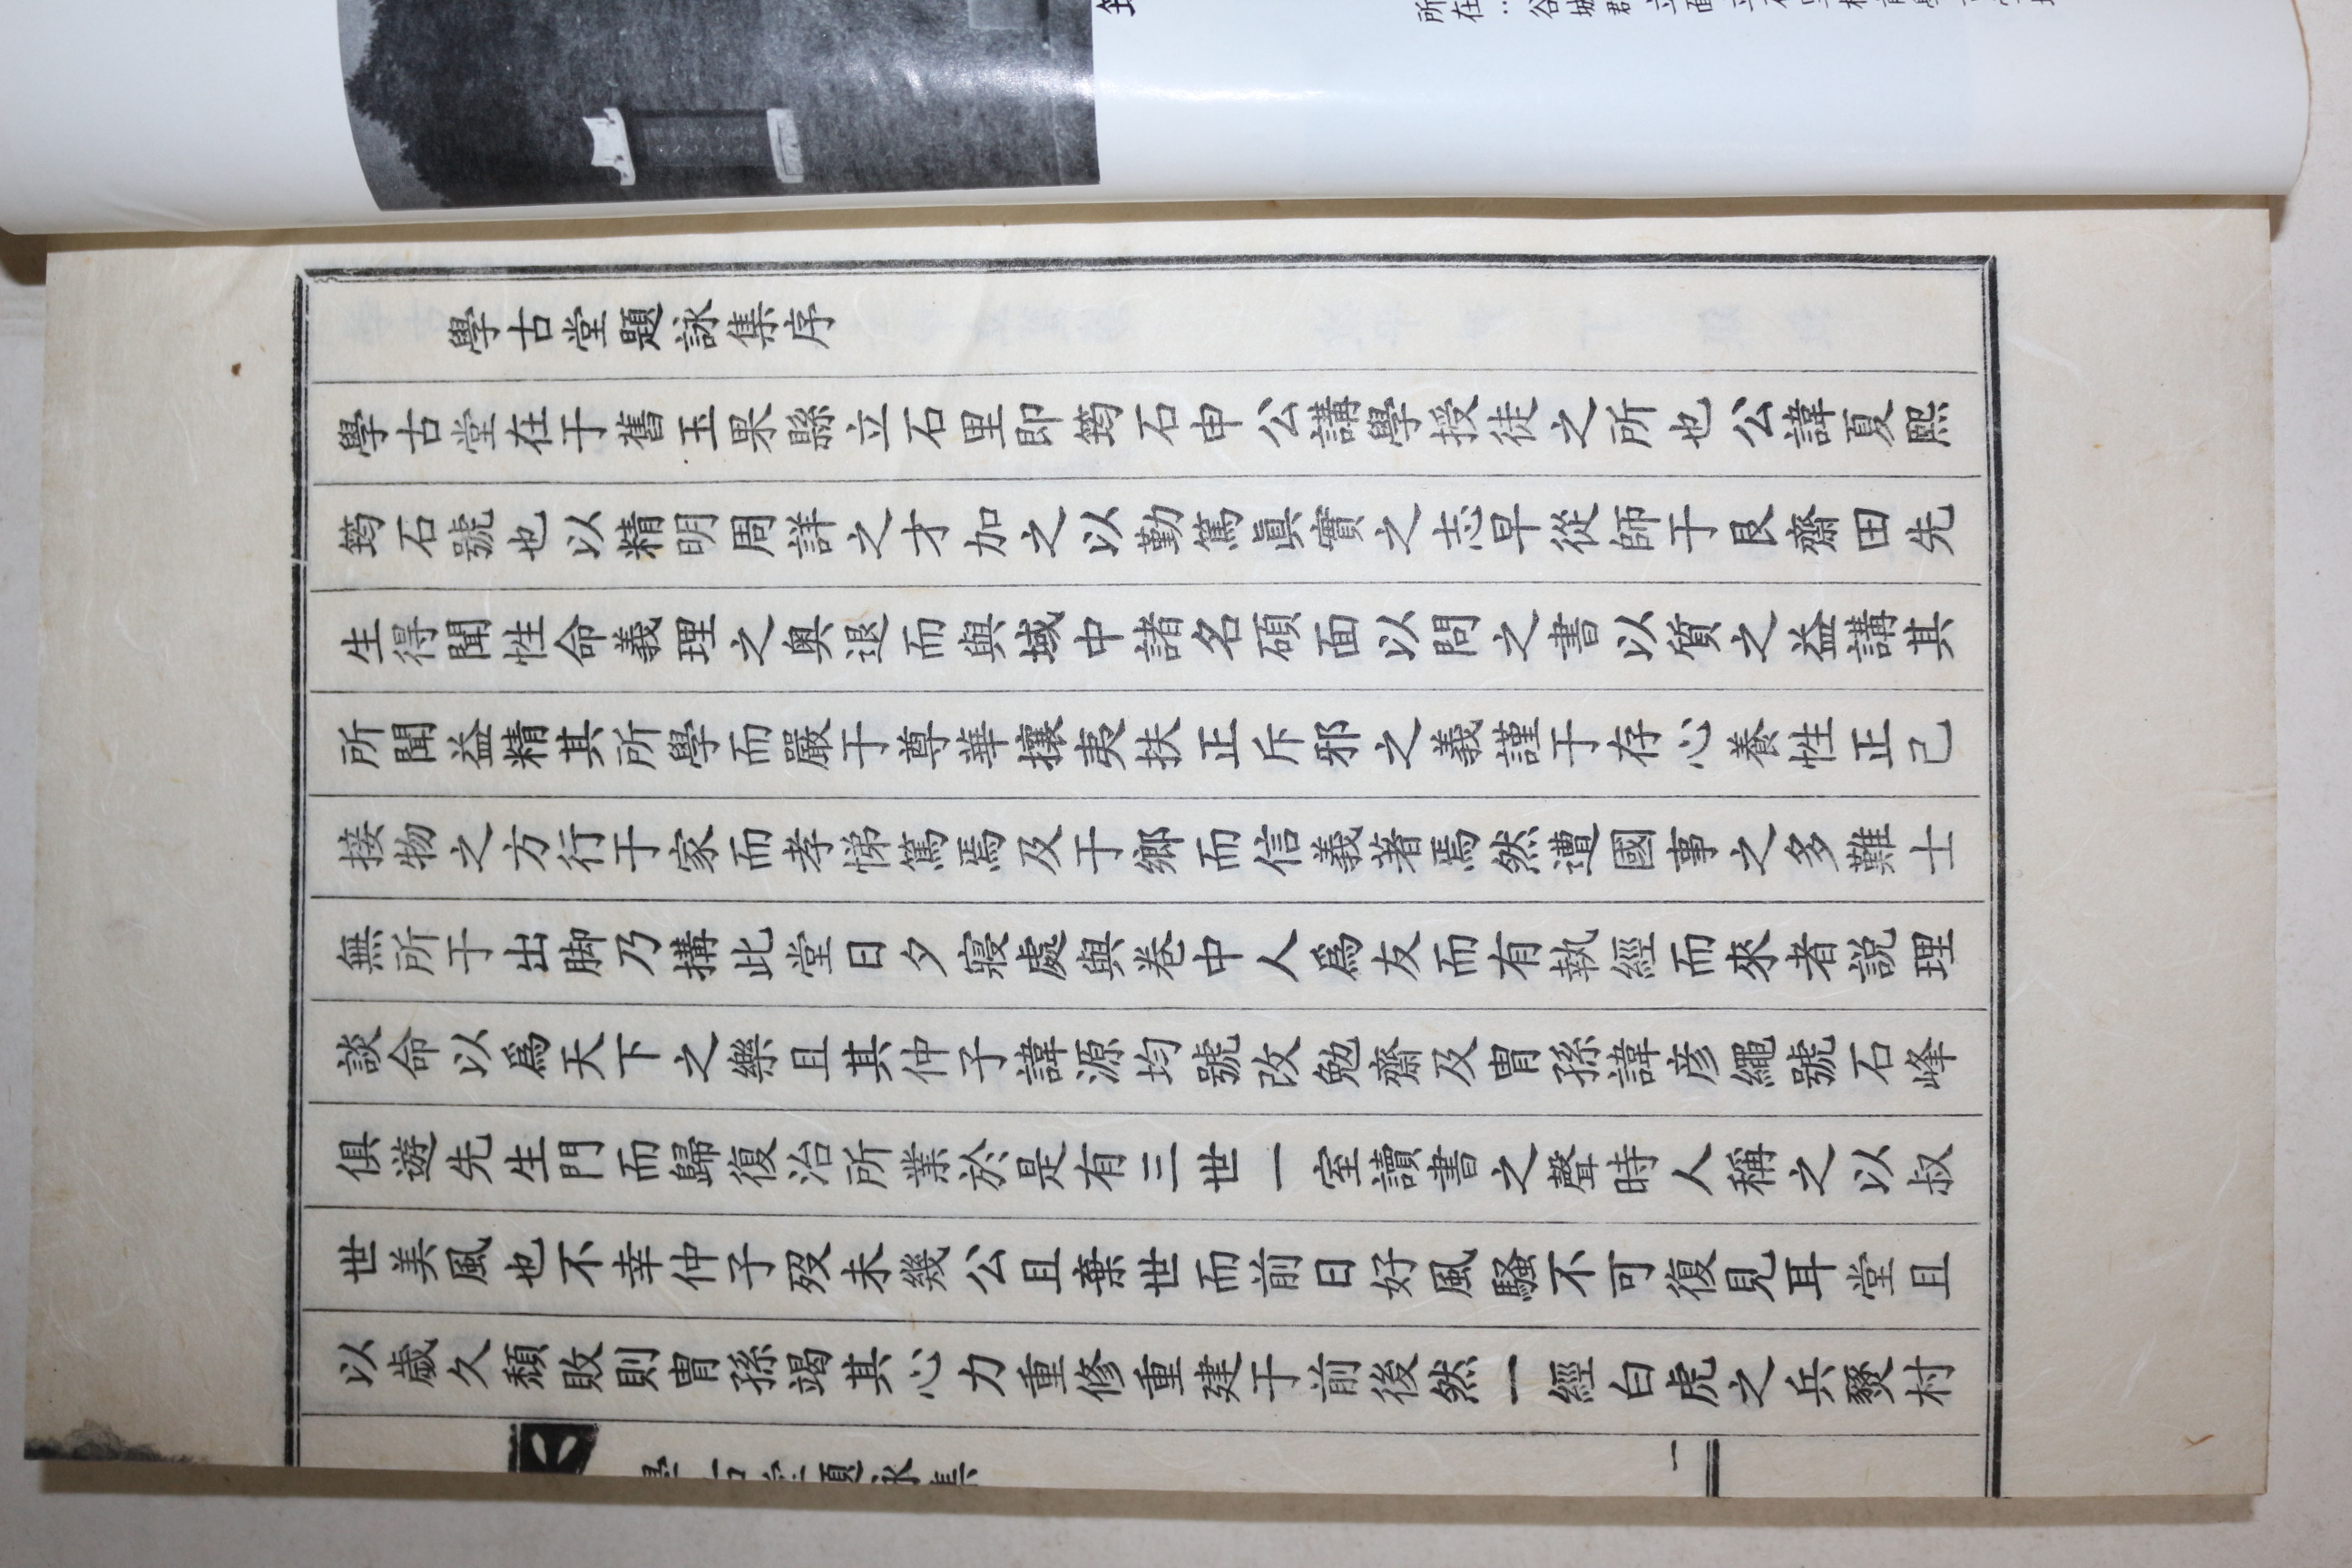 所在：谷城郡立面立石
學古堂題詠集序
學古堂在于舊玉果縣立石里即筠石申公講學授徒之所也公諱夏熙
筠石號也以精明周詳之才加之以勤篤眞實之志早從師于艮齋田先
生得聞性命義理之奧退而與域中諸名碩面以問之書以質之益講其
所聞益精其所學而嚴于尊華攘夷扶正斥邪之義謹于存心養性正己
接物之方行于家而孝悌篤焉及于鄉而信義著焉然遭國事之多難士
無所于出脚乃搆此堂日夕寢處與卷中人爲友而有執經而來者説理
談命以爲天下之樂且其仲子諱源均號改勉齋及胄孫諱彦繩號石峰
俱遊先生門而歸復治所業於是有三世一室讀書之聲時人稱之以叔
世美風也不幸仲子歿未幾公且棄世而前日好風騷不可復見耳堂且
以歲久頹敗則胄孫竭其心力重修重建于前後然一經白虎之兵燹村
學古堂題詠集
一